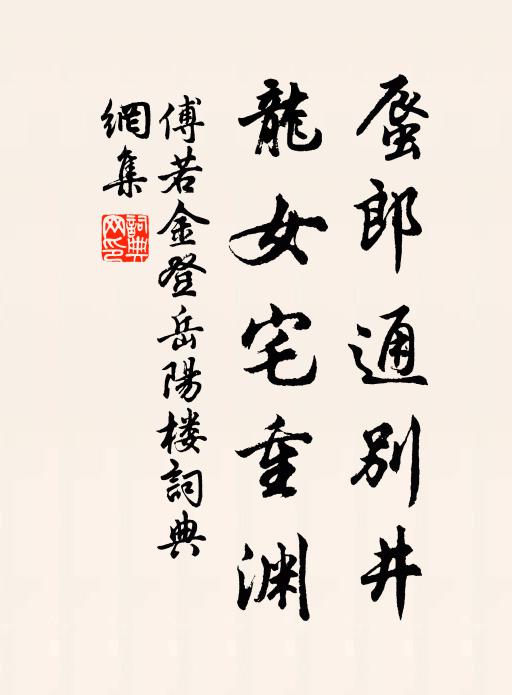 蜃郎通別井
龍女宅重渊
傅若金登岳陽楼詞典
網集
詞典
网印